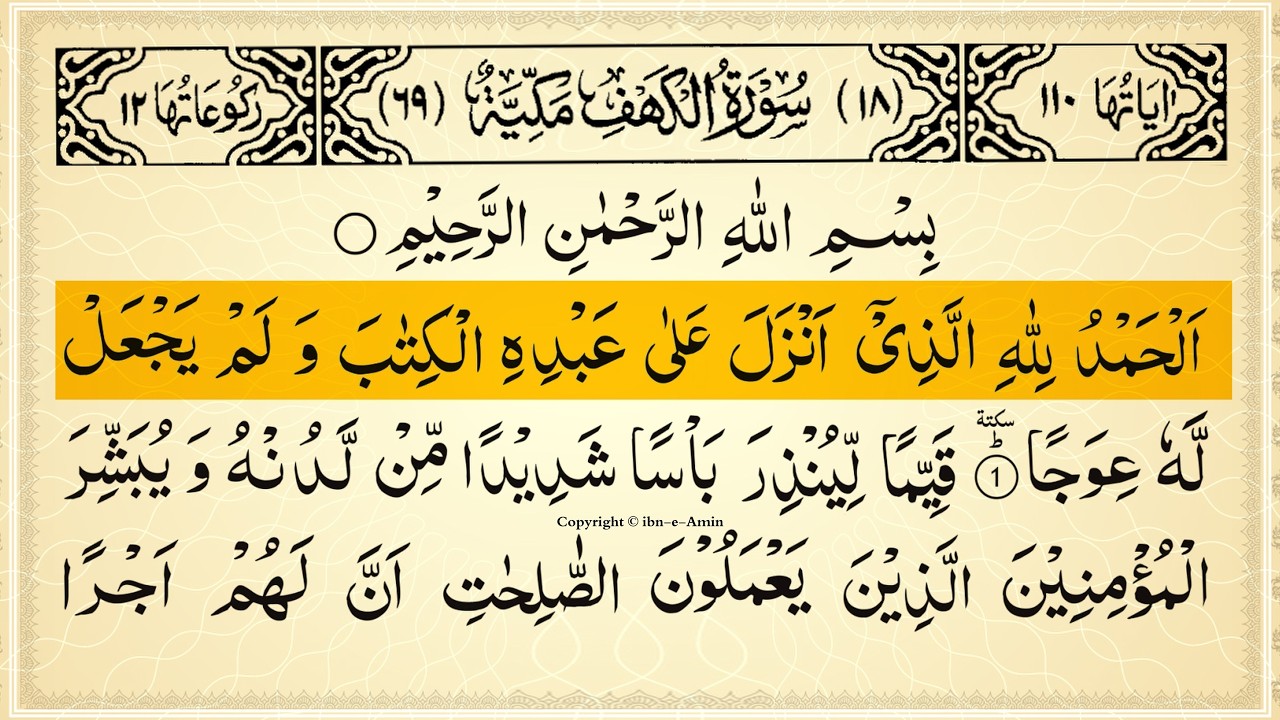 اٰيَاتُهَا ١١٠ (١٨) سُوْرَةُ الْكَهْفِ مَكِّيَّةٌ (٦٩) رُكُوْعَاتُهَا ١٢
بِسْمِ اللّٰهِ الرَّحْمٰنِ الرَّحِيْمِ ○
اَلْحَمْدُ لِلّٰهِ الَّذِىْۤ اَنْزَلَ عَلٰى عَبْدِهِ الْكِتٰبَ وَ لَمْ يَجْعَلْ
لَّهٗ عِوَجًا ؕ سكتة ① قَيِّمًا لِّيُنْذِرَ بَاْسًا شَدِيْدًا مِّنْ لَّدُنْهُ وَ يُبَشِّرَ
Copyright © ibn-e-Amin
الْمُؤْمِنِيْنَ الَّذِيْنَ يَعْمَلُوْنَ الصّٰلِحٰتِ اَنَّ لَهُمْ اَجْرًا